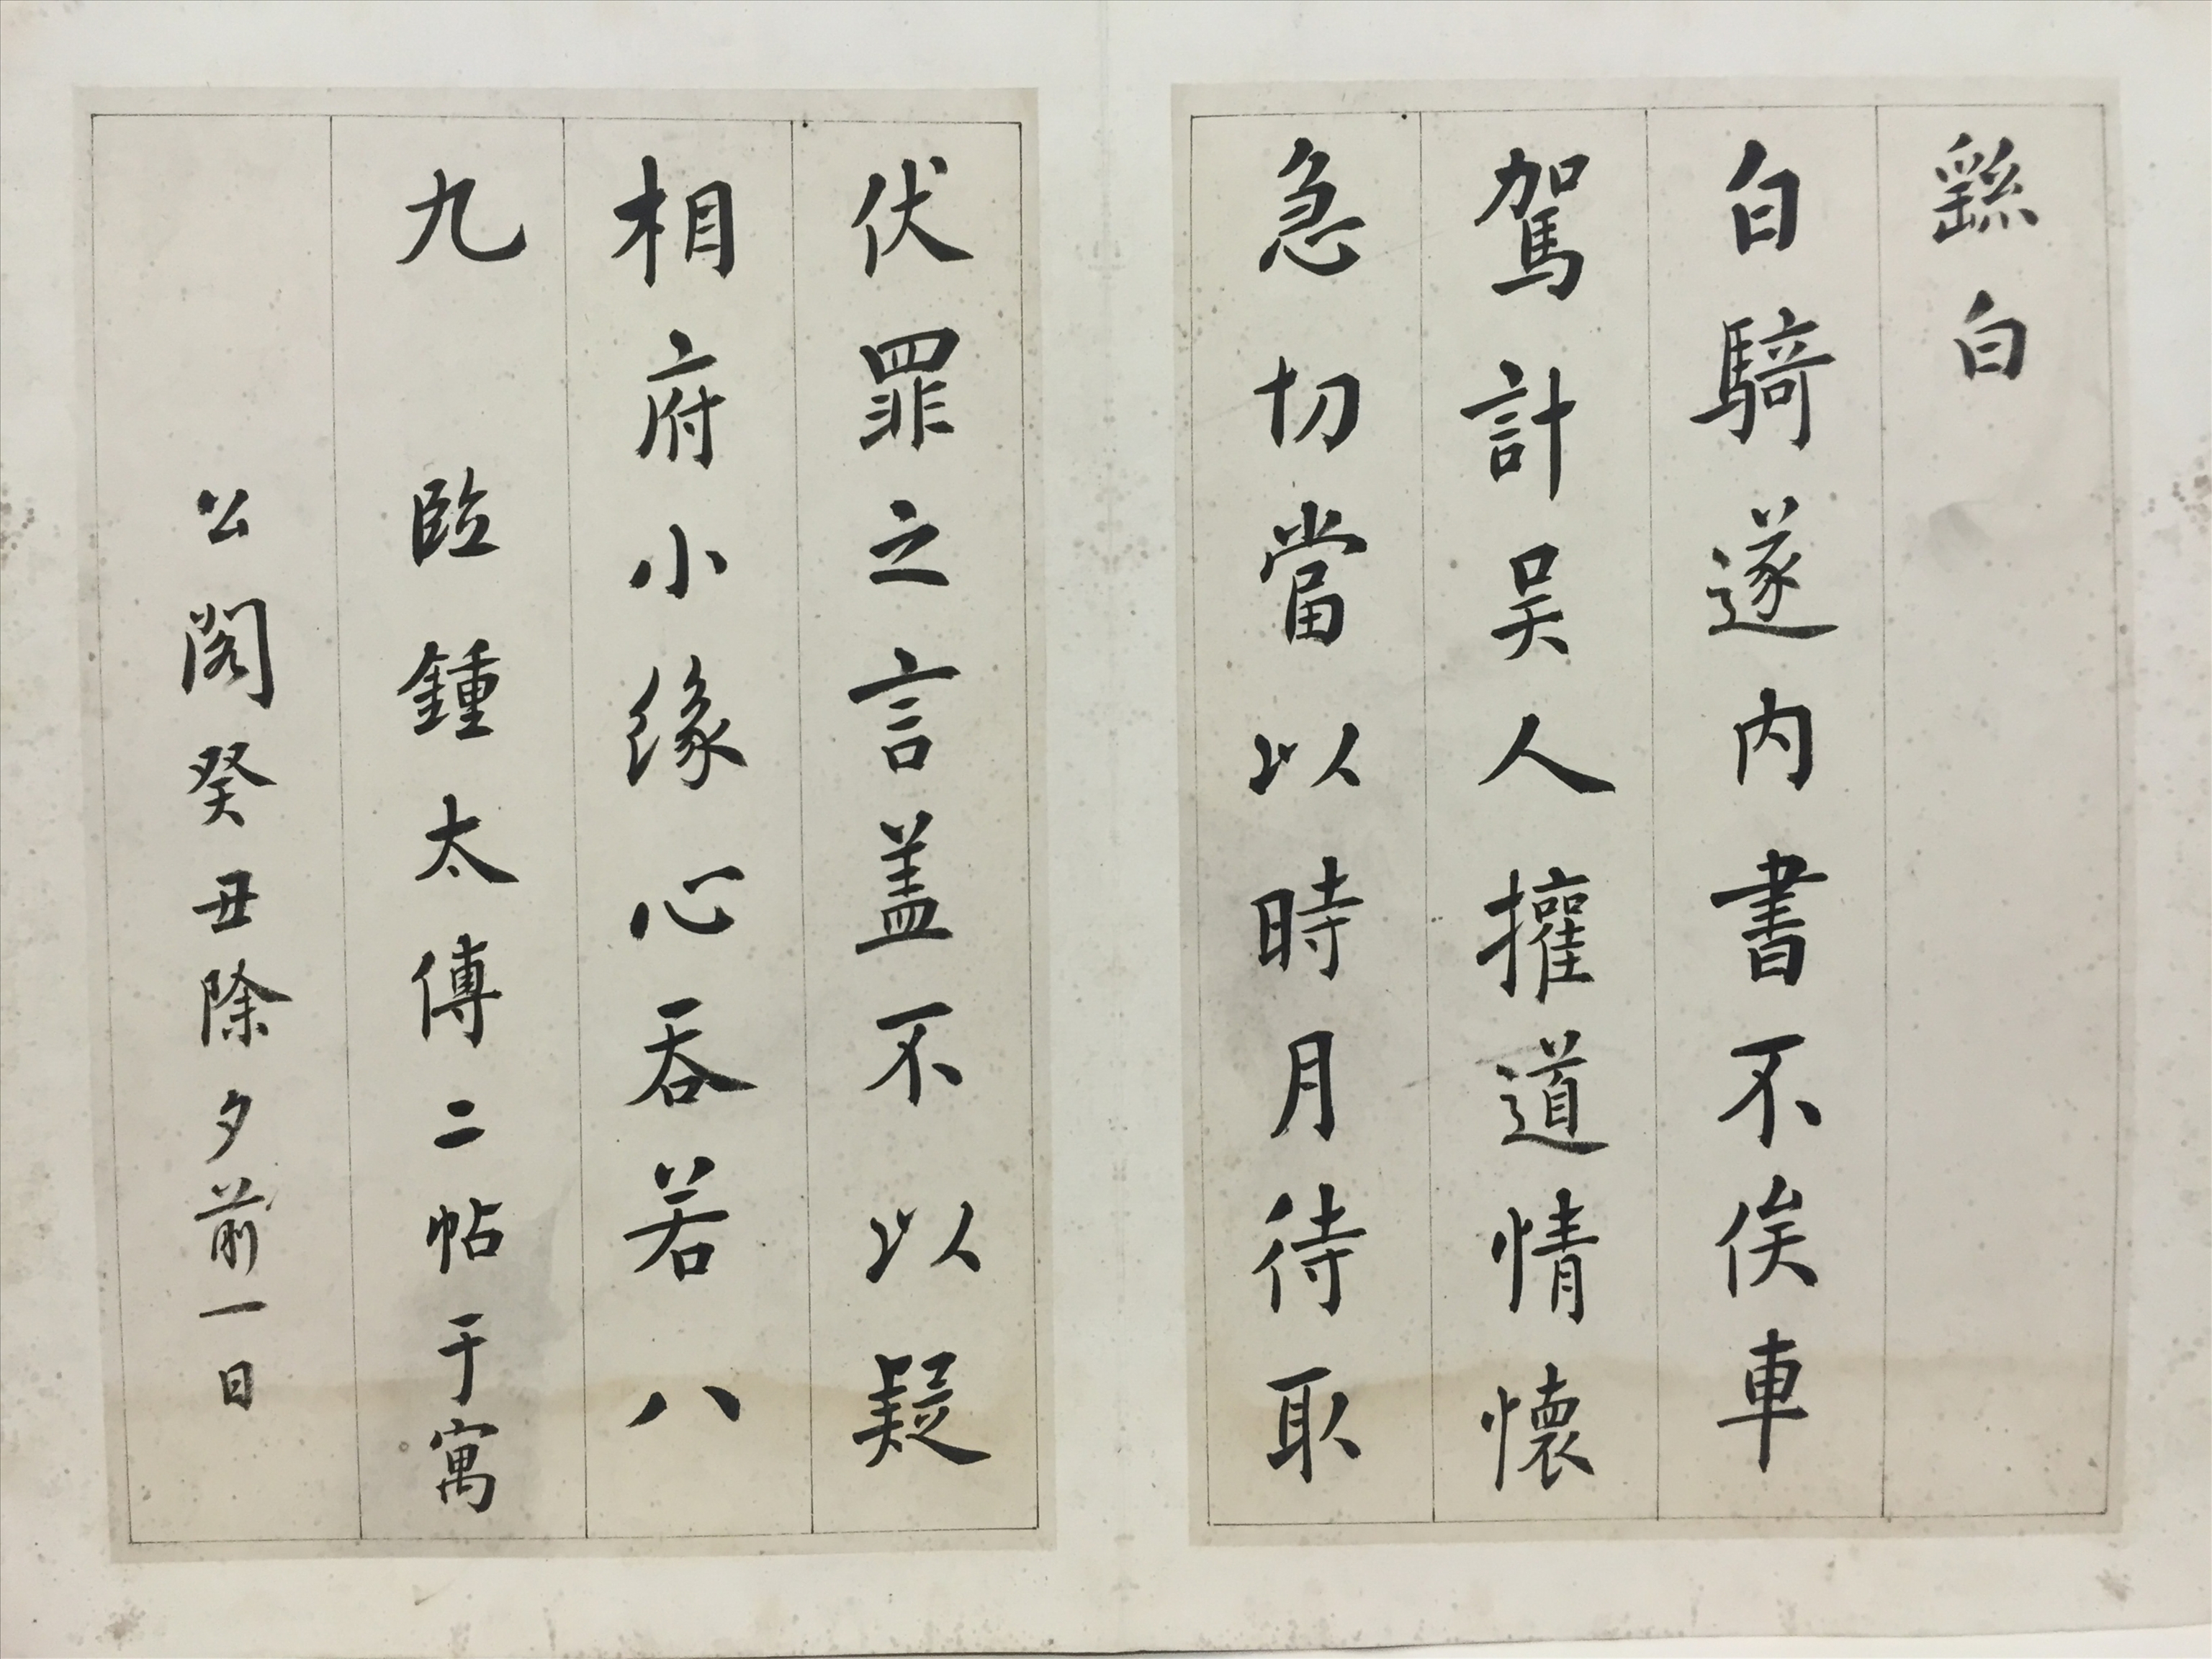 繇白
白騎遂內書不俟車
駕計吴人攉道情懷
急切當以時月待取
伏罪之言盖不以疑
相府小緣心吞若八
九 臨鍾太傅二帖于寓
公閣癸丑除夕前一日